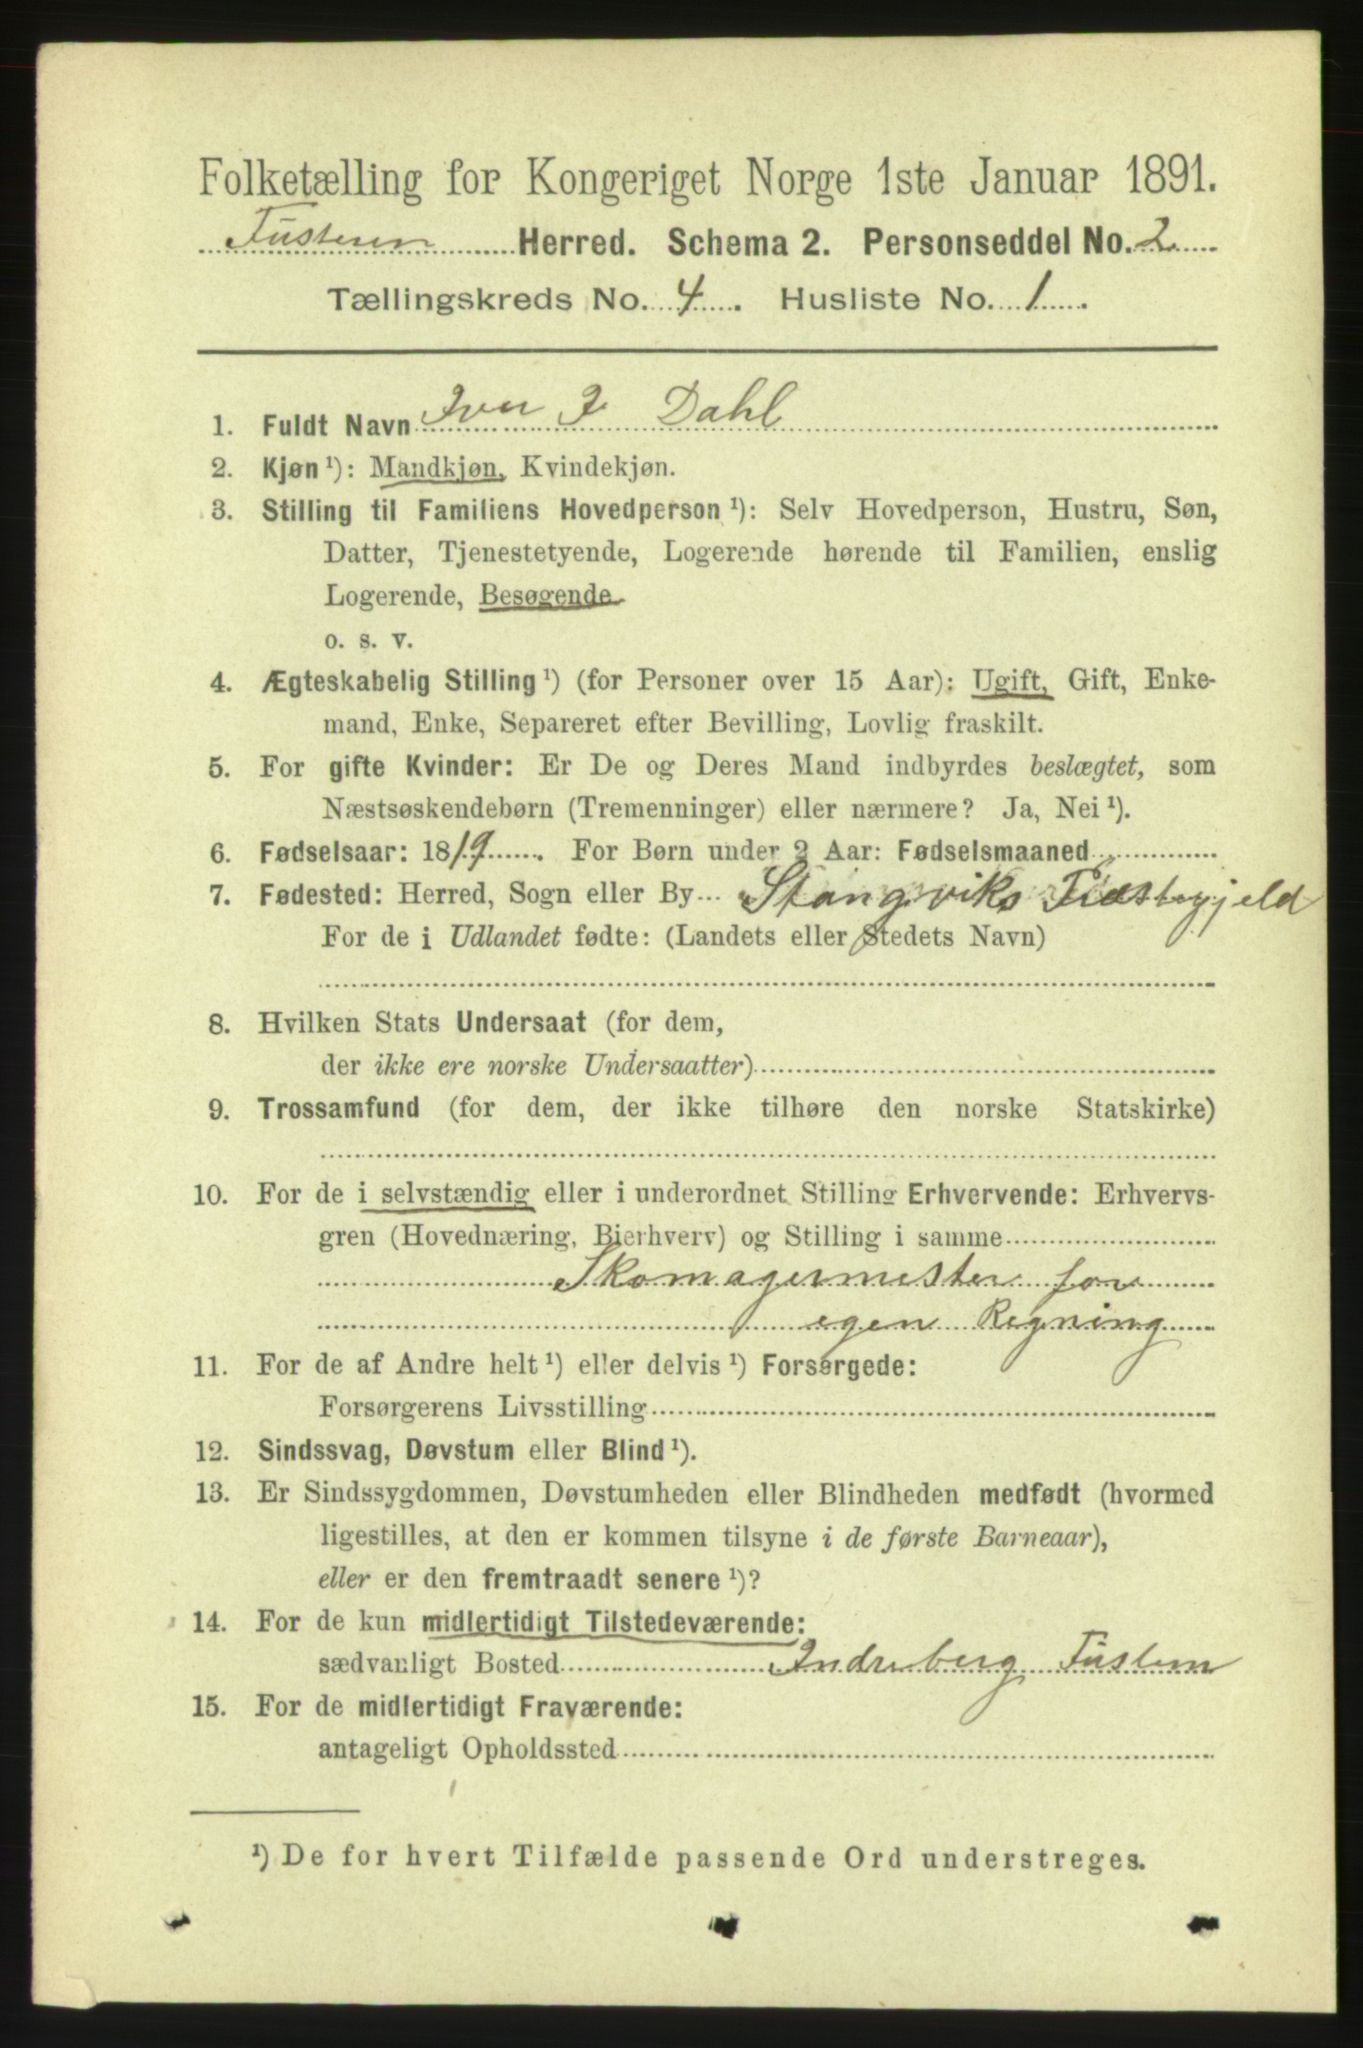 Folketælling for Kongeriget Norge 1ste Januar 1891.
Tusteren Herred. Schema 2. Personseddel No. 2
Tællingskreds No. 4. Husliste No. 1
1. Fuldt Navn Iver I Dahl
2. Kjøn ¹): Mandkjøn, Kvindekjøn.
3. Stilling til Familiens Hovedperson ¹): Selv Hovedperson, Hustru, Søn,
Datter, Tjenestetyende, Logerende hørende til Familien, enslig
Logerende, Besøgende
o. s. v.
4. Ægteskabelig Stilling ¹) (for Personer over 15 Aar): Ugift, Gift, Enke-
mand, Enke, Separeret efter Bevilling, Lovlig fraskilt.
5. For gifte Kvinder: Er De og Deres Mand indbyrdes beslægtet, som
Næstsøskendebørn (Tremenninger) eller nærmere? Ja, Nei ¹).
6. Fødselsaar: 1819. For Børn under 2 Aar: Fødselsmaaned
7. Fødested: Herred, Sogn eller By Stangviks
For de i Udlandet fødte: (Landets eller Stedets Navn)
8. Hvilken Stats Undersaat (for dem,
der ikke ere norske Undersaatter)
9. Trossamfund (for dem, der ikke tilhøre den norske Statskirke)
10. For de i selvstændig eller i underordnet Stilling Erhvervende: Erhvervs-
gren (Hovednæring, Bierhverv) og Stilling i samme
Skomagermester for
egen Regning
11. For de af Andre helt ¹) eller delvis ¹) Forsørgede:
Forsørgerens Livsstilling
12. Sindssvag, Døvstum eller Blind ¹).
13. Er Sindssygdommen, Døvstumheden eller Blindheden medfødt (hvormed
ligestilles, at den er kommen tilsyne i de første Barneaar),
eller er den fremtraadt senere ¹)?
14. For de kun midlertidigt Tilstedeværende:
sædvanligt Bosted Indreberg Tustern
15. For de midlertidigt Fraværende:
antageligt Opholdssted
¹) De for hvert Tilfælde passende Ord understreges.